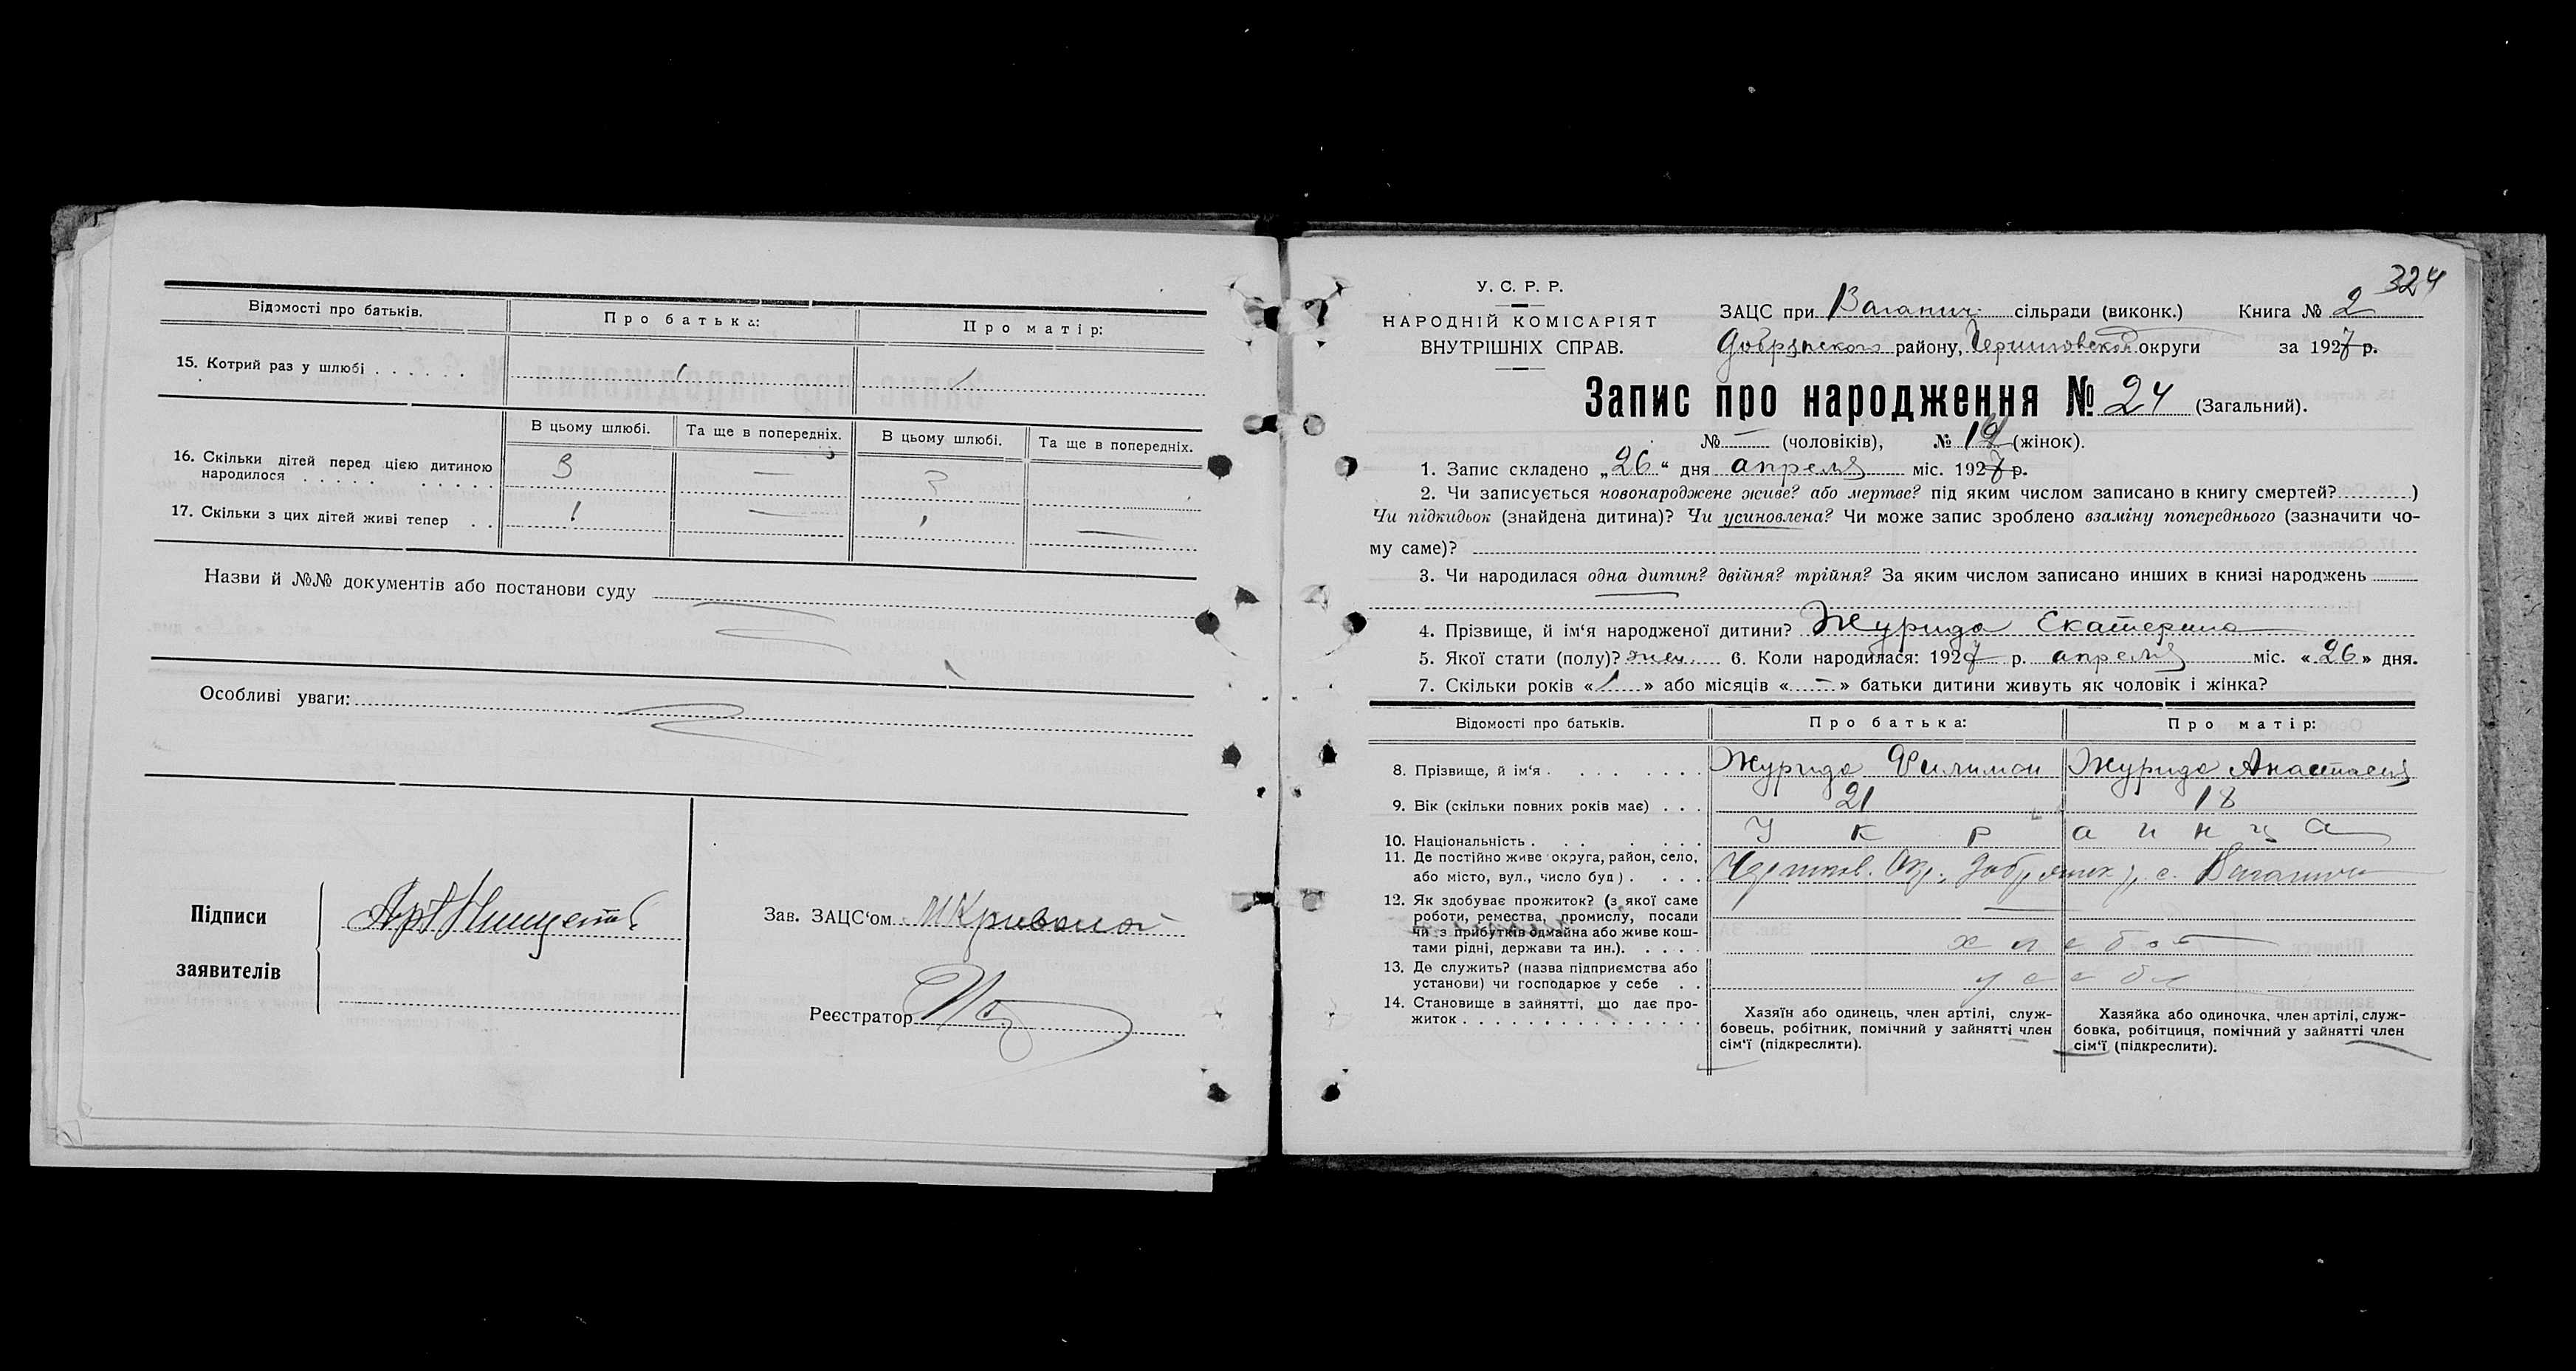 Відомості про батьків.
Про батька:
Про матір:
15. Котрий раз у шлюбі
1
В цьому шлюбі.
Та ще в попередніх.
В цьому шлюбі.
Та ще в попередніх.
16. Скільки дітей перед цією дитиною
народилося
3
—
3
17. Скільки з цих дітей живі тепер
1
—
1
—
Назви й №№ документів або постанови суду
Особливі уваги:
Підписи
заявителів
Зав. ЗАЦС'ом
Реєстратор
324
У. С. Р. Р.
НАРОДНІЙ КОМІСАРІЯТ
ВНУТРІШНІХ СПРАВ.
ЗАЦС при Ваганич. сільради (виконк.) Книга № 2
Добрянского району, Черниговской округи за 1927 р.
Запис про народження № 24 (Загальний).
№ — (чоловіків), № 12 (жінок).
1. Запис складено „26" дня апреля міс. 1927 р.
2. Чи записується новонароджене живе? або мертве? під яким числом записано в книгу смертей?)
Чи підкидьок (знайдена дитина)? Чи усиновлена? Чи може запис зроблено взаміну попереднього (зазначити чо-
му саме)?
3. Чи народилася одна дитин? двійня? трійня? За яким числом записано инших в книзі народжень
4. Прізвище, й ім'я народженої дитини? Журида Екатерина
5. Якої стати (полу)? жен. 6. Коли народилася: 1927 р. апреля міс. «26» дня.
7. Скільки років «1» або місяців «—» батьки дитини живуть як чоловік і жінка?
Відомості про батьків.
Про батька:
Про матір:
8. Прізвище, й ім'я
Журида Филимон
Журида Анастасия
9. Вік (скільки повних років має)
21
18
10. Національність
Украинца
11. Де постійно живе округа, район, село,
або місто, вул., число буд)
Чернигов. Окр., Добрянск р, с. Ваганичи
12. Як здобуває прожиток? (з якої саме
роботи, ремества, промислу, посади
чи з прибутків одмайна або живе кош-
тами рідні, держави та ин.).
хлебоп
13. Де служить? (назва підприємства або
установи) чи господарює у себе
у себя
14. Становище в зайнятті, що дає про-
житок
Хазяїн або одинець, член артілі, служ-
бовець, робітник, помічний у зайнятті член
сім'ї (підкреслити).
Хазяйка або одиночка, член артілі, служ-
бовка, робітциця, помічний у зайнятті член
сім'ї (підкреслити).